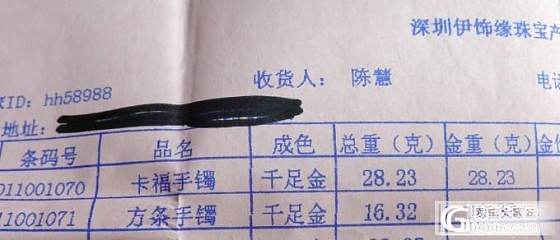 深圳伊饰缘珠宝产
ID: hh58988
收货人: 陈慧
电话
地址:
条码号 品名 成色 总重（克） 金重（克） 金
011001070 卡福手镯 千足金 28.23 28.23
11001071 方条手镯 千足金 16.32